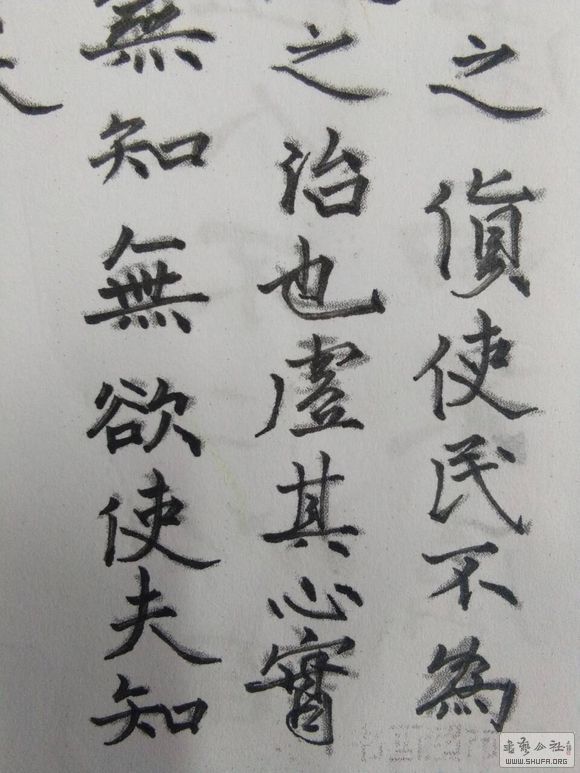 之貨使民不為
之治也虛其心實
無知無欲使夫知
書藝公社
WWW.SHUFA.ORG